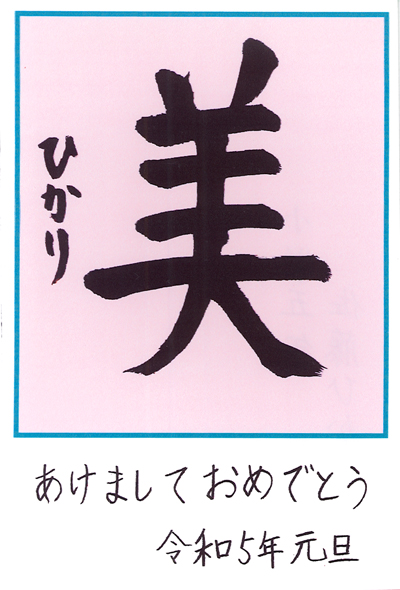 美
ひかり
あけましておめでとう
令和5年元旦